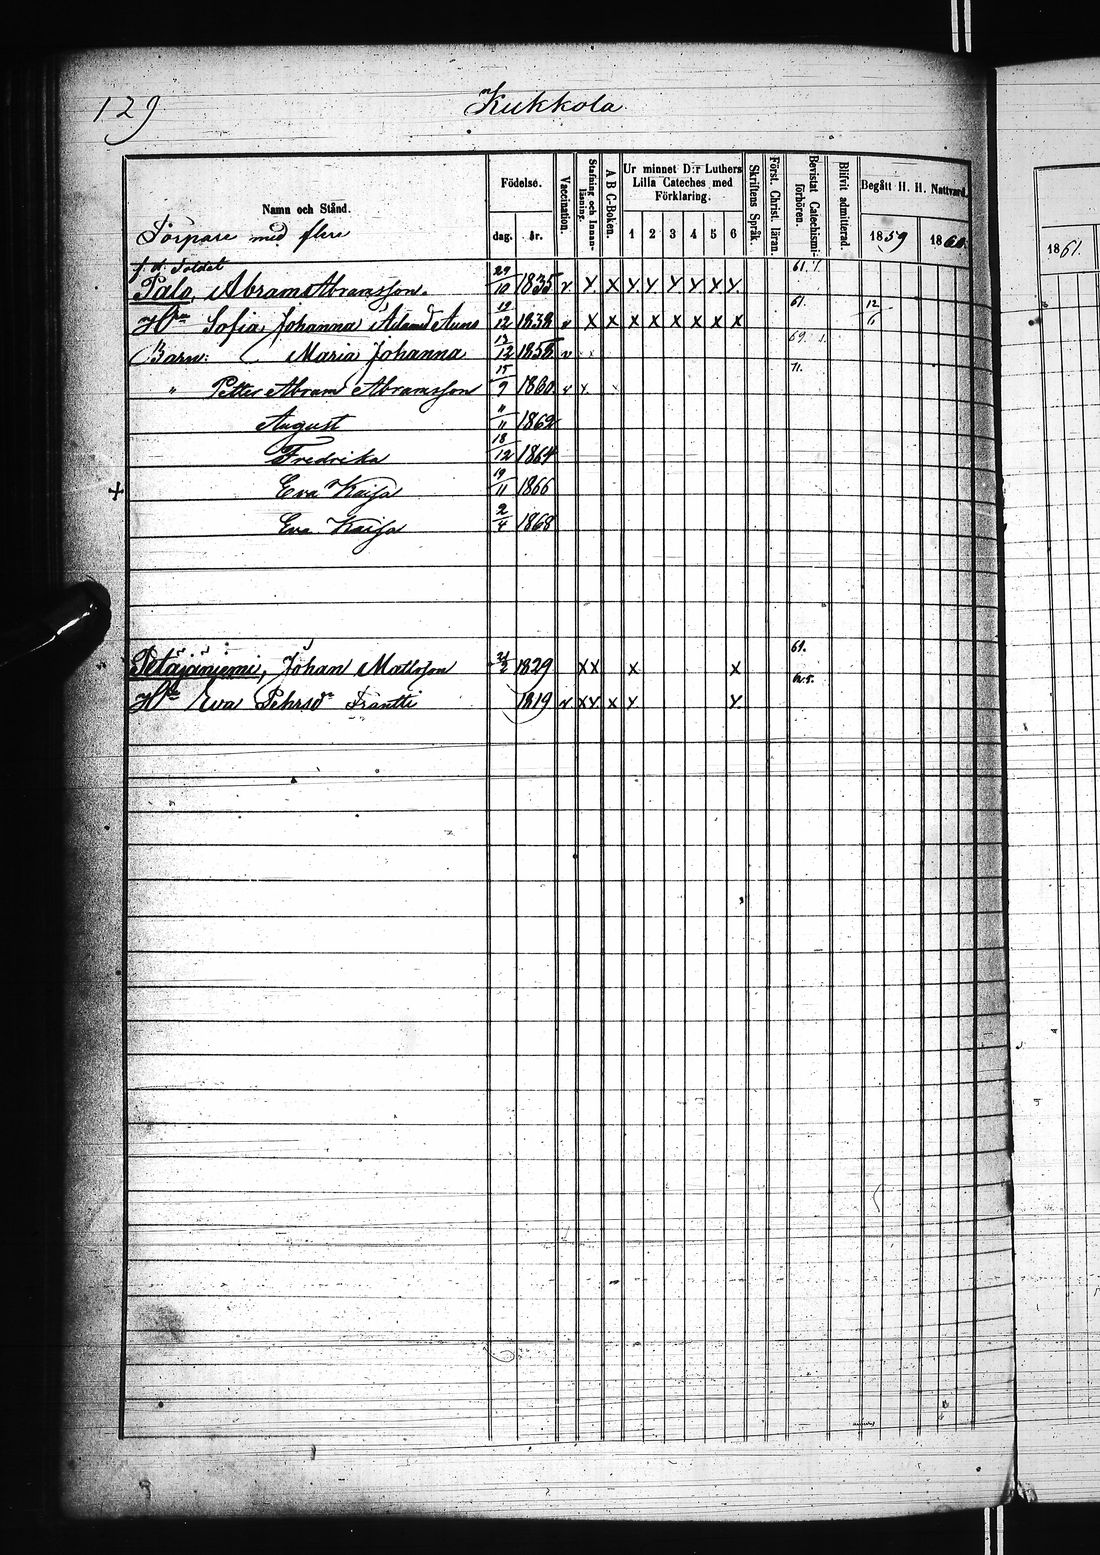 129
Kukkola
Namn och Stånd. Födelse. dag. år. Vaccination. Stafning och Innan-läsning. A B C-Boken. Ur minnet D:r Luthers Lilla Cateches med Förklaring. 1 2 3 4 5 6 Skriftens Språk. Först. Christ. läran. Bevistat Catechismi-förhören. Blifvit admitterad. Begått H. H. Nattvard. 1859 1860. 1861.
Torpare med flere
f. d. Soldat
Palo, Abram Abramsson. 29/10 1835 v X X X X X X X X 61.
Hu Sofia Johanna Adamsd 19/12 1838 v X X X X X X X X 61. 12/6
Barn: Maria Johanna 12/12 1858 v 69.
" Petter Abram Abramsson 15/9 1860. v x 71.
August 11/11 1862
Fredrika 18/12 1864
+ Eva Kaisa 19/11 1866
Eva Kaisa 2/4 1868
Petäjäniemi, Johan Mattsson 1829 X X X X 61.
Hu Eva Pehrsdr 1819 v X X X X X